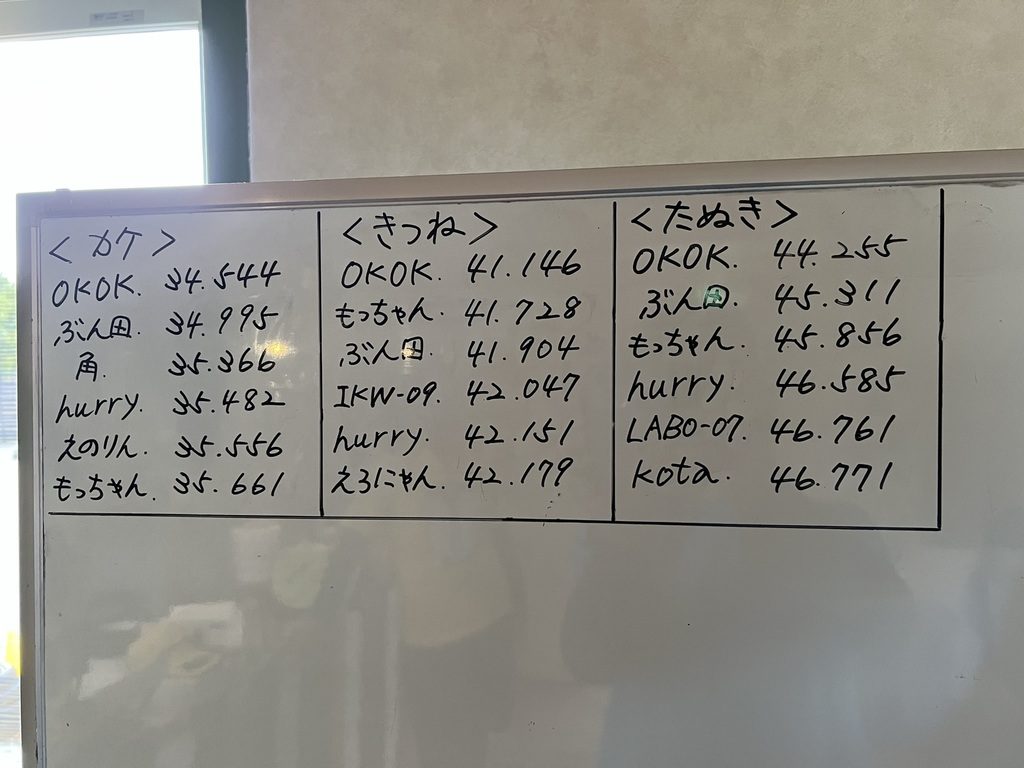 <カケ>
OKOK. 34.544
ぶん田. 34.995
角. 35.366
hurry. 35.482
えのりん. 35.556
もっちゃん. 35.661
<きつね>
OKOK. 41.146
もっちゃん. 41.728
ぶん田. 41.904
IKW-09. 42.047
hurry. 42.151
えろにゃん. 42.179
<たぬき>
OKOK. 44.255
ぶん田. 45.311
もっちゃん. 45.856
hurry. 46.585
LABO-07. 46.761
kota. 46.771